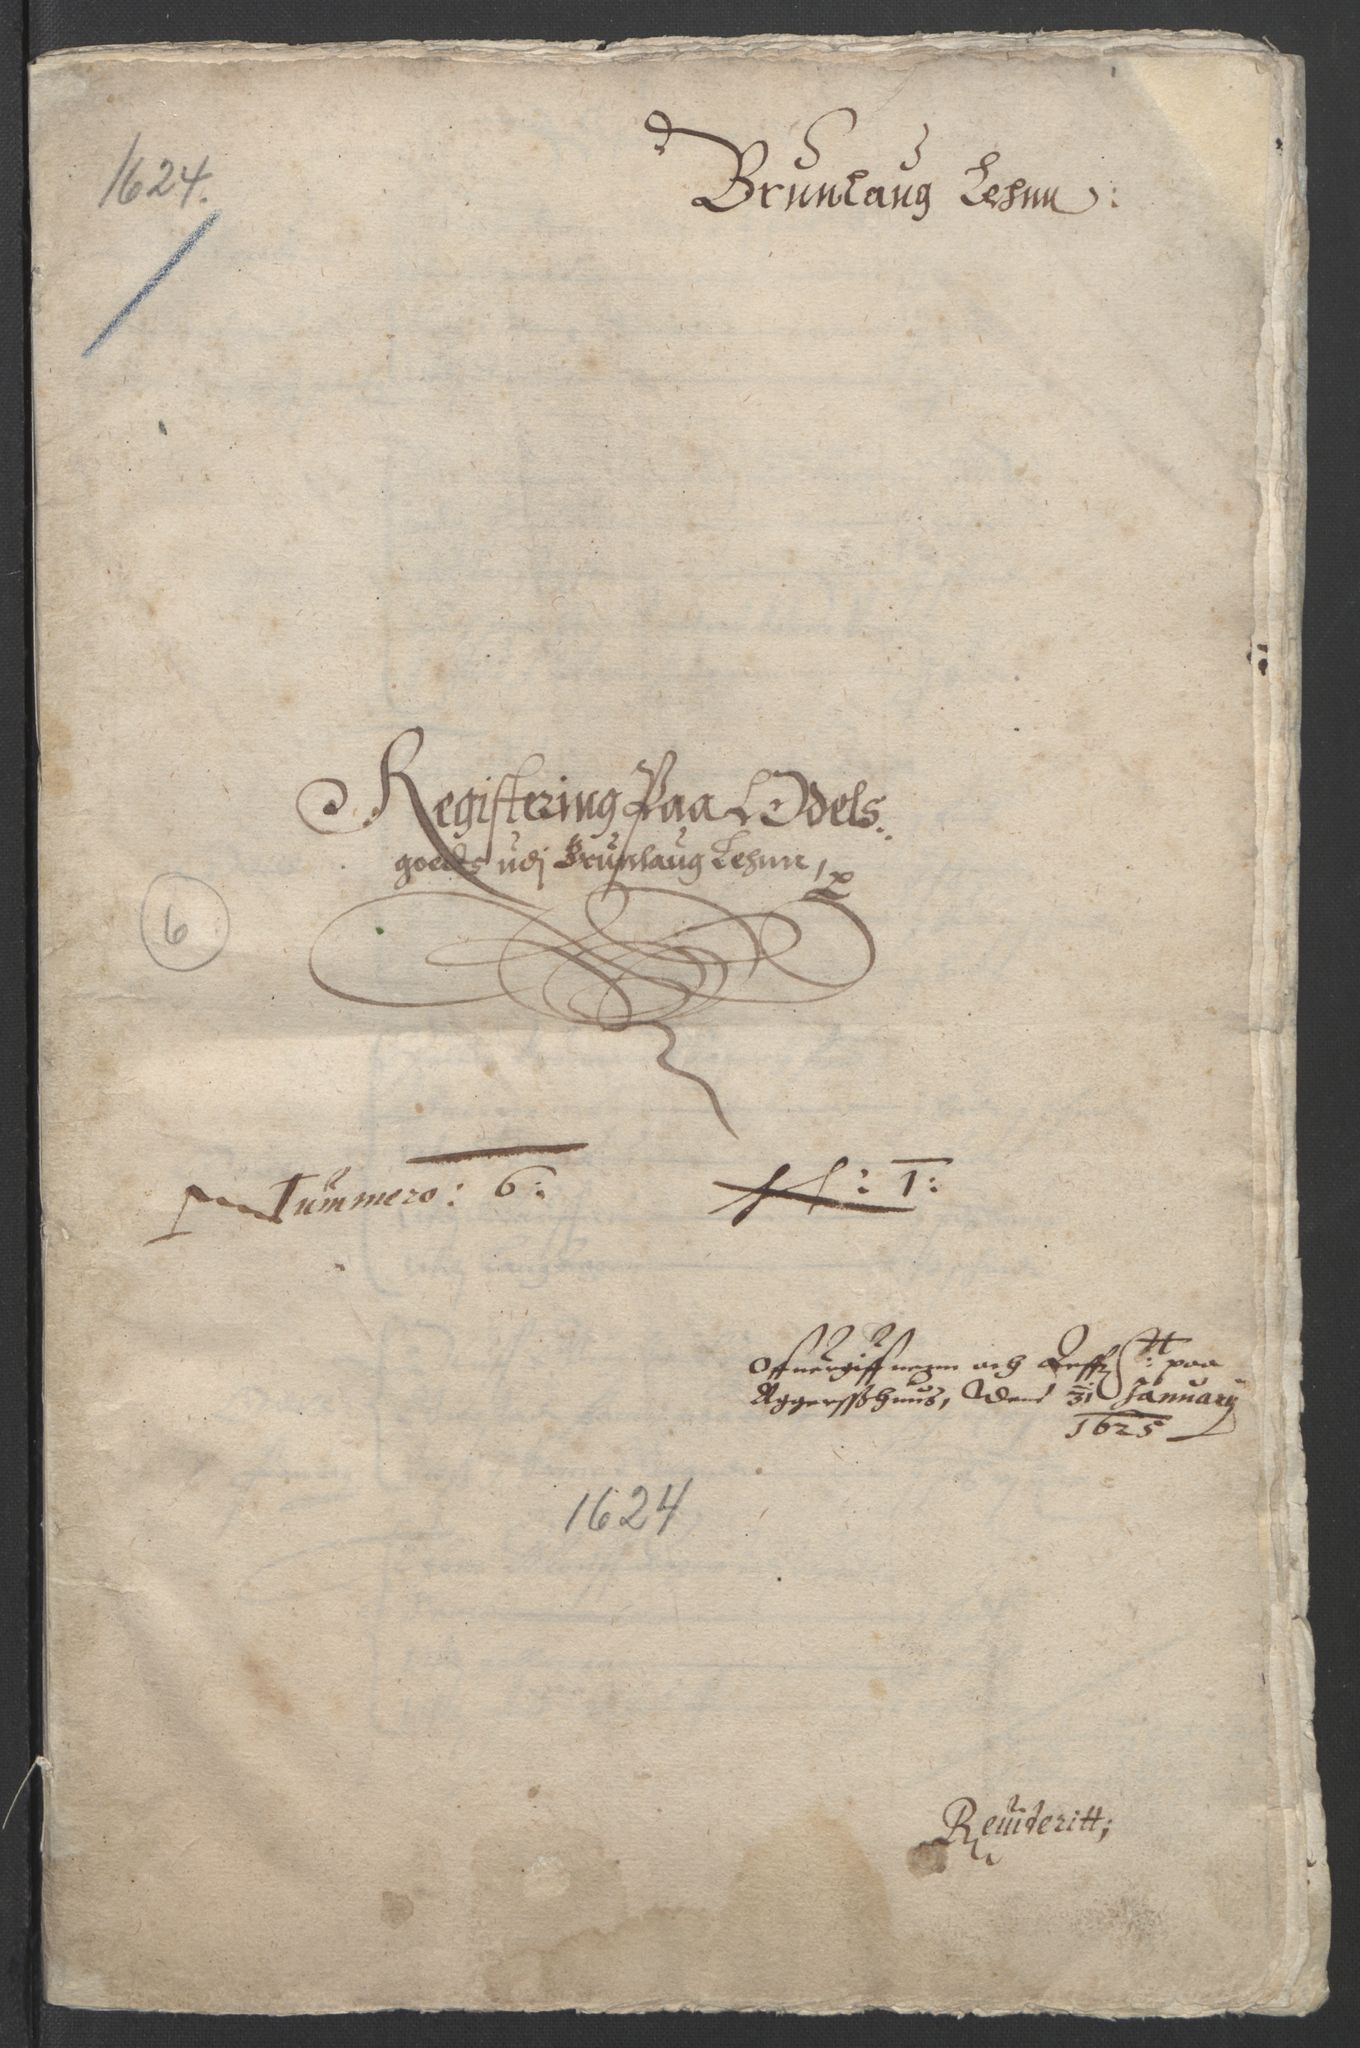 1624.
Brunlaug Lehnn:
Registering Paa Odels
goedts udj Brunlaug Lehnn
6
Nummero: 6: : 1:
Offuergiffuezen och paa
Aggersshuus, Den 31 January
1625
1624
Reuideritt;